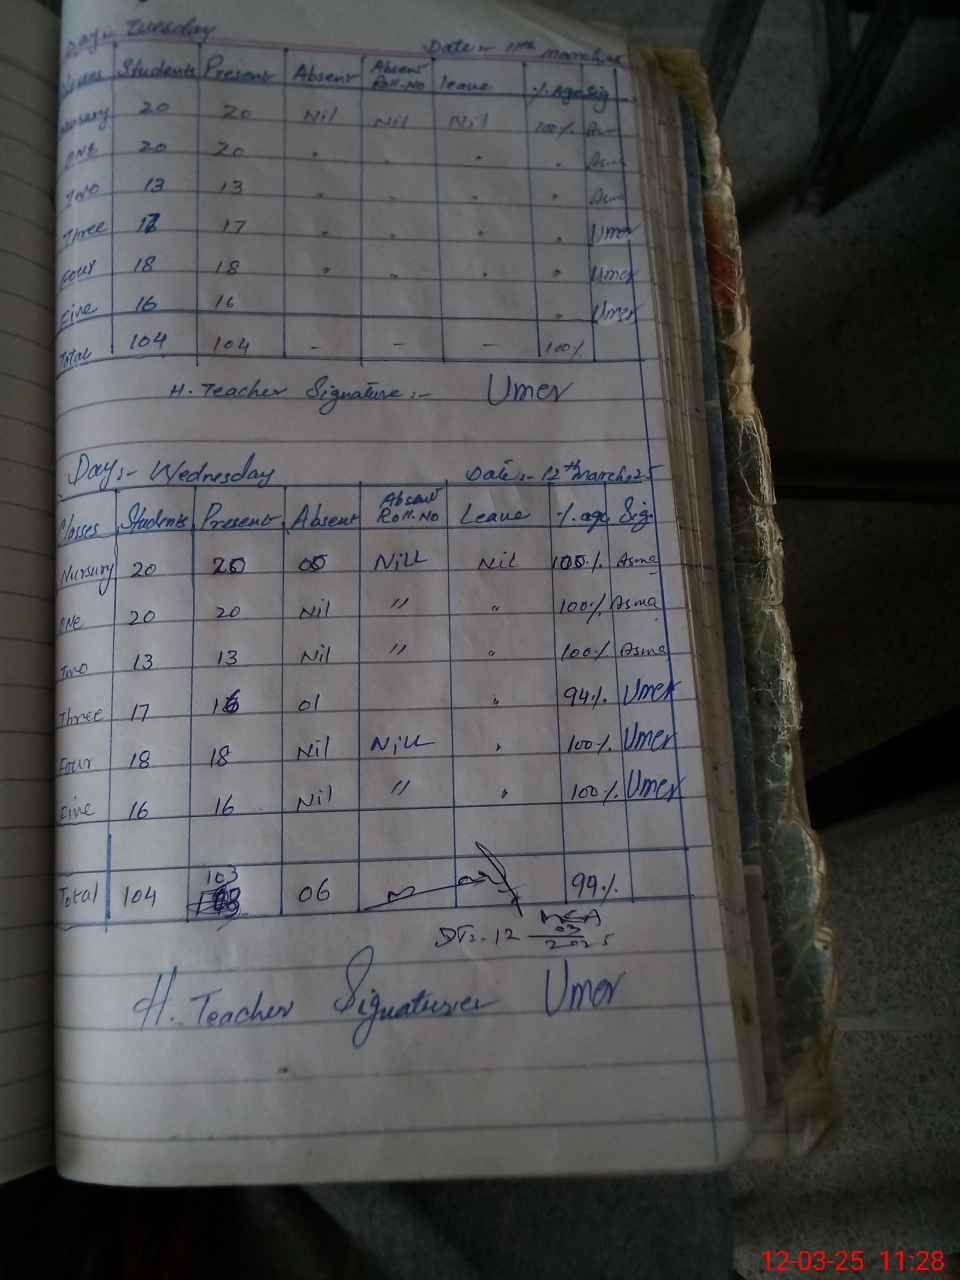 Day:- Tuesday Date:- 11th March, 25
Classes Students Present Absent Absent Roll.No leave %age Sig
Nursury 20 20 Nil Nil Nil 100%
One 20 20 Asma
Two 13 13 Asma
Three 17 17 Umer
Four 18 18 Umer
Five 16 16 Umer
Total 104 104 - - - 100%
H. Teacher Signature:- Umer
Day:- Wednesday Date:- 12th March, 25
Classes Students Present Absent Absent Roll.No Leave %.age Sig.
Nursury 20 20 00 Nill Nil 100% Asma
One 20 20 Nil " " 100% Asma
Two 13 13 Nil " " 100% Asma
Three 17 16 01 " 94% Umer
Four 18 18 Nil Nill " 100% Umer
Five 16 16 Nil " " 100% Umer
Total 104 103 06 99%
DT:- 12 03 2025
H. Teacher Signature Umer
12-03-25 11:28